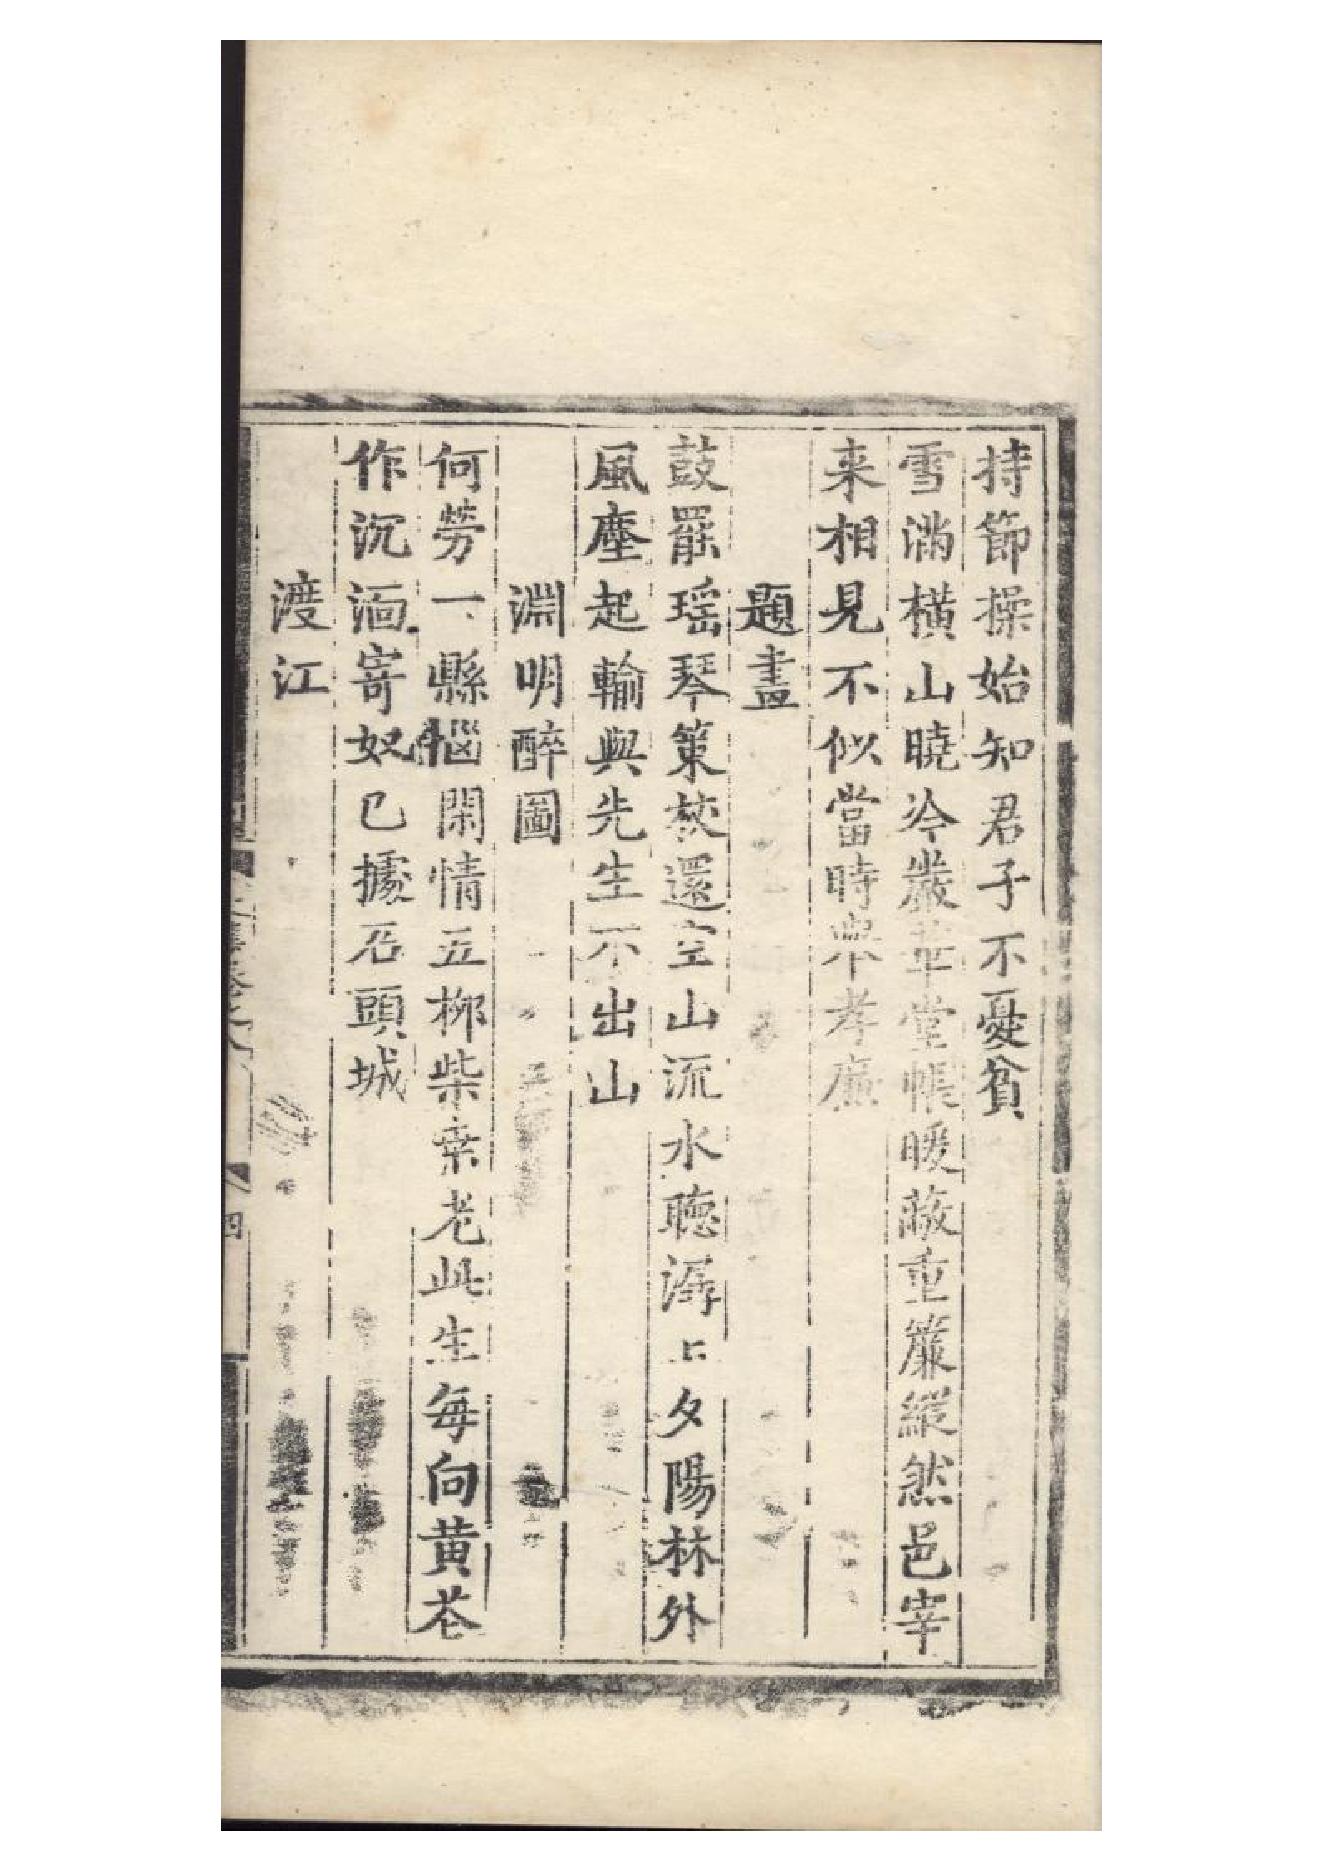 持節操始知君子不憂貧
雪滿橫山曉冷嚴草堂帳暖蔽重簾縱然邑宰
来相見不似當時舉孝廉
題畫
鼓罷瑶琴策杖還空山流水聴潺〻夕陽林外
風塵起輸與先生不出山
淵明醉圖
何勞一縣惱閑情五柳柴桒老此生每向黄花
作沉湎寄奴已據石頭城
渡江
四